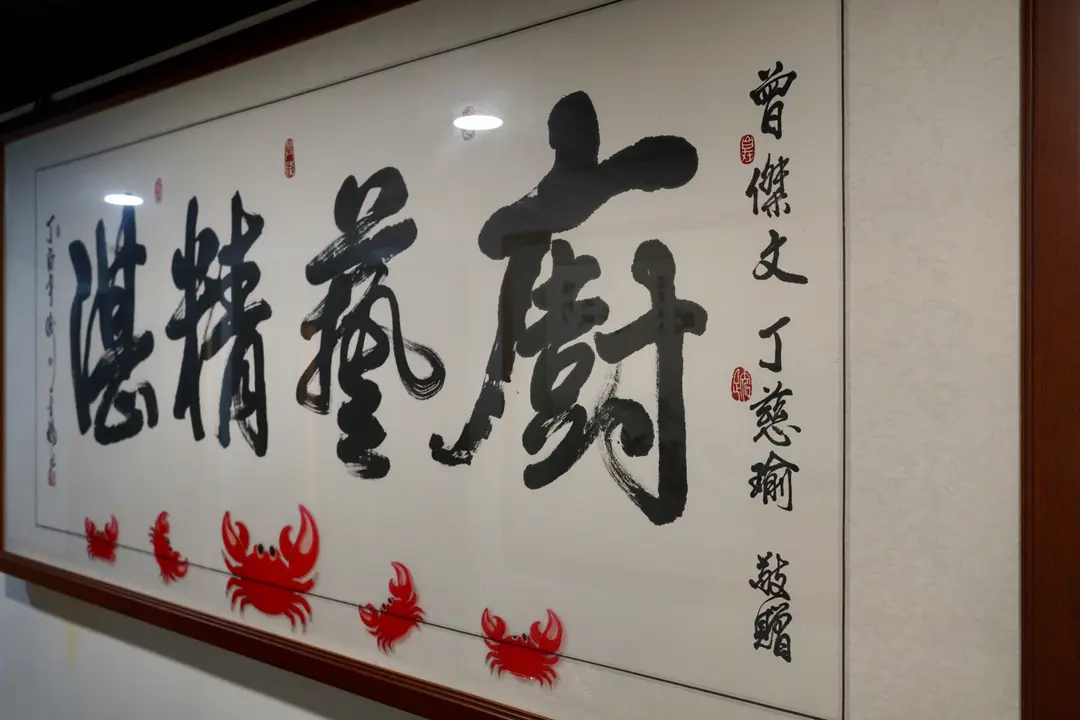 曾傑文 丁慈瑜 敬贈
廚藝精湛